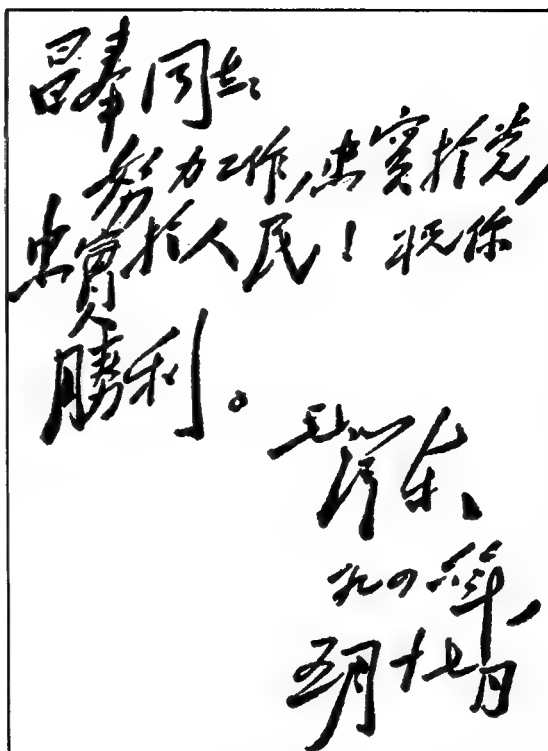 昌奉同志:
努力工作,忠实於党,
忠實於人民!祝你
勝利。
毛泽东、
一九四六年
五月十七日